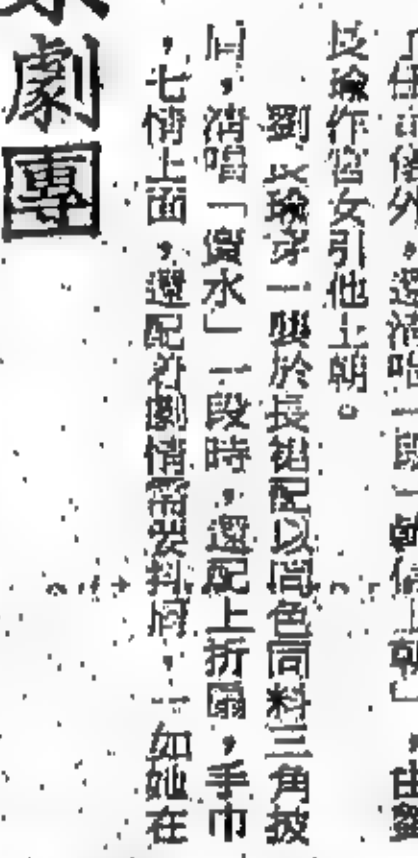 上朝」，由劉
長瑜作宮女引他上朝。
劉長瑜穿一襲於長裙配以同色同料三角披
肩，清唱「賣水」一段時，還配上折扇，手巾
，七情上面，還配着劇情需要抖肩，一如她在
劇團